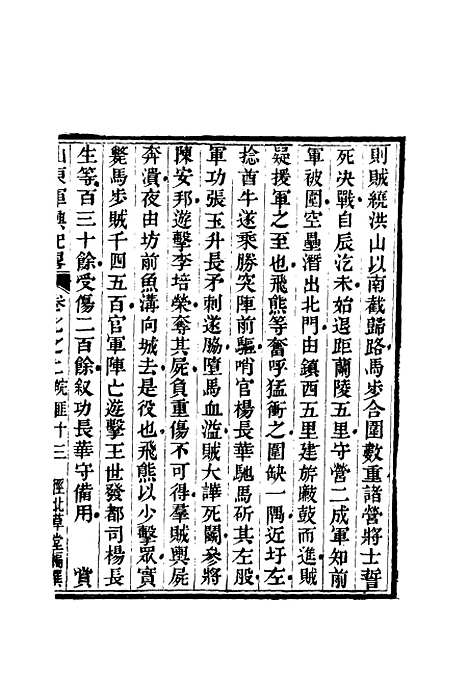 則賊繞洪山以南截歸路馬步合圍數重諸營將士誓
死決戰自辰汔未始退距蘭陵五里守營二成軍知前
軍被圍空壘潛出北門由鎮西五里建旂鼓而進賊
疑援軍之至也飛熊等奮呼猛衝之圍缺一隅近圩左
捻酋牛遂乘勝突陣前驅哨官楊長華馳馬斫其左股
軍功張玉升長矛刺遂脇墮馬血濫賊大譁死鬬參將
陳安邦遊擊李培榮奪其屍負重傷不可得羣賊輿屍
奔潰夜由坊前魚溝向城去是役也飛熊以少擊眾實
斃馬步賊千四五百官軍陣亡遊擊王世發都司楊長
生等百三十餘受傷二百餘叙功長華守備用 賞
山東軍興紀畧 卷七之二 皖匪十三 徑北草堂編撰